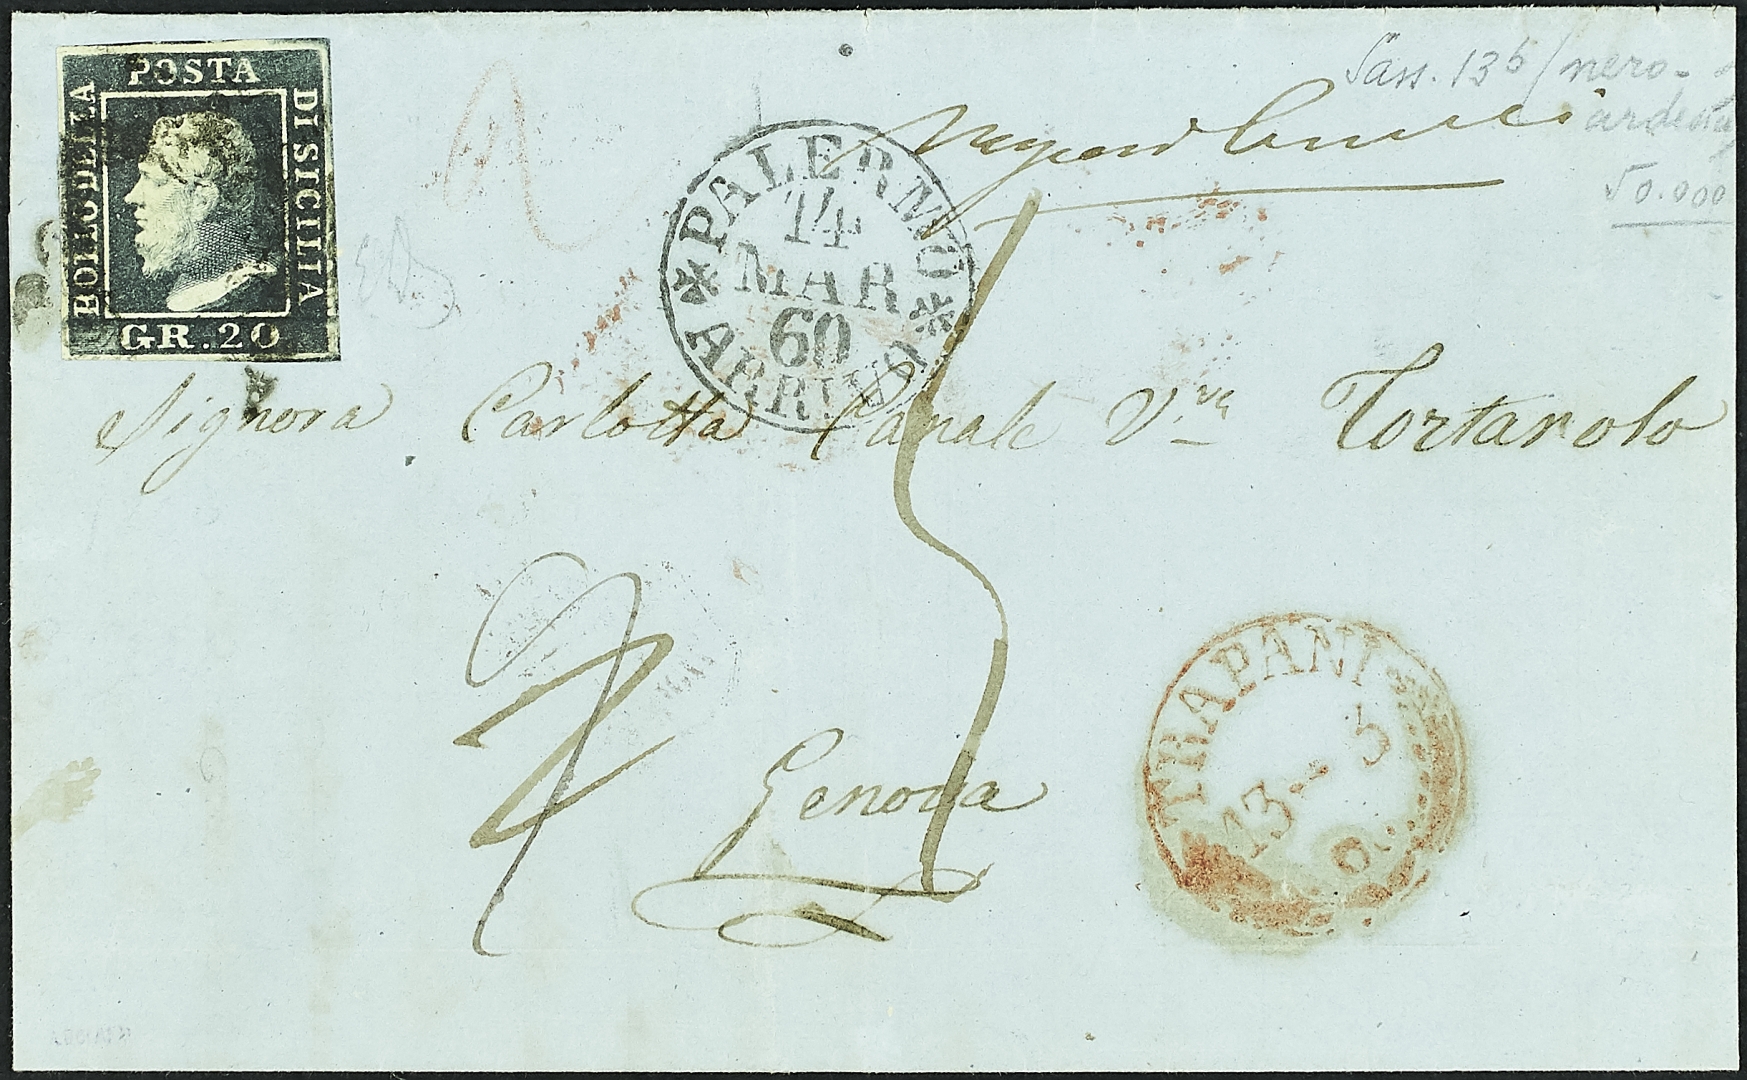 POSTA
BOLLO DELLA
DI SICILIA
GR. 20
Sass. 13b/nero-
ardesia
50.000
PALERMO
14
MAR
60
ARRIVO
Signora Carlotta Canale V.va Tortarolo
Genova
TRAPANI
13 - 3